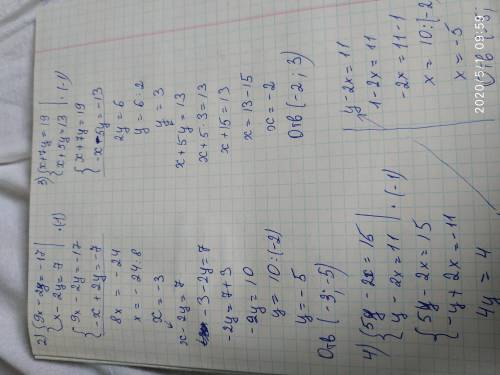 2) {9x - 2y = -17
{x - 2y = 7 | · (-1)
{9x - 2y = -17
{-x + 2y = -7
8x = -24
x = -24:8
x = -3
x - 2y = 7
-3 - 2y = 7
-2y = 7 + 3
-2y = 10
y = 10:(-2)
y = -5
Отв (-3; -5)
3) {x + 7y = 19
{x + 5y = 13 | · (-1)
{x + 7y = 19
{-x - 5y = -13
2y = 6
y = 6:2
y = 3
x + 5y = 13
x + 5·3 = 13
x + 15 = 13
x = 13 - 15
x = -2
Отв (-2; 3)
4) {5y - 2x = 15
{y - 2x = 11 | · (-1)
{5y - 2x = 15
{-y + 2x = -11
4y = 4
y - 2x = 11
1 - 2x = 11
-2x = 11 - 1
x = 10:(-2
x = -5
Отв (-5;
2020/5/11 09:59